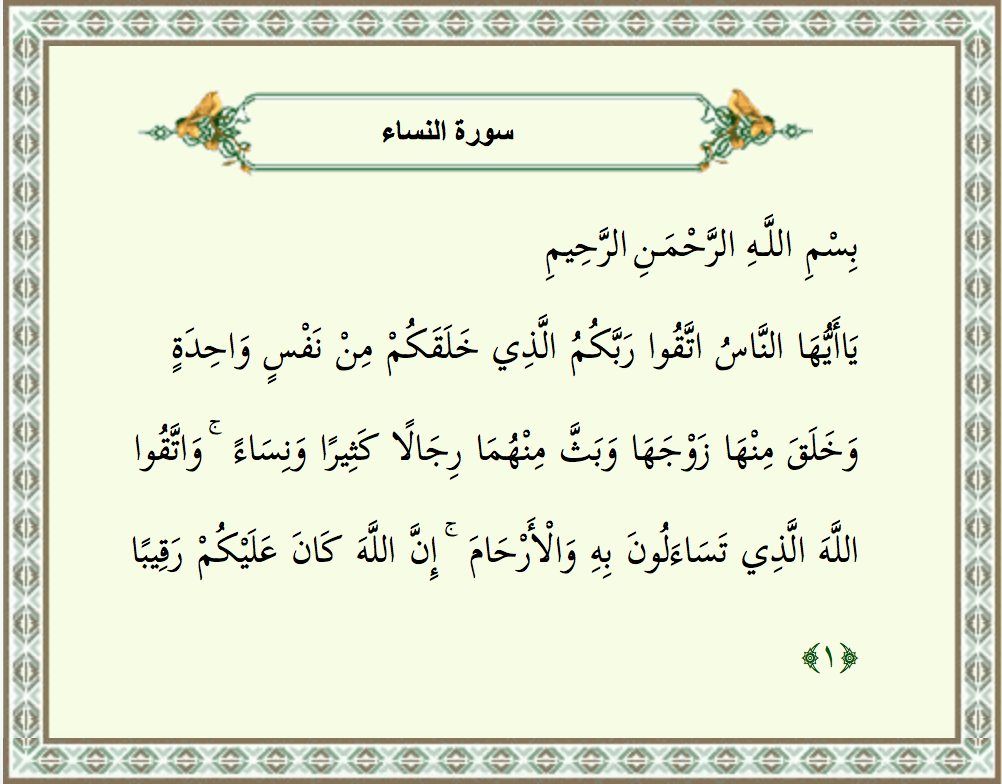 سورة النساء
بِسْمِ اللَّـهِ الرَّحْمَـنِ الرَّحِيمِ
يَاأَيُّهَا النَّاسُ اتَّقُوا رَبَّكُمُ الَّذِي خَلَقَكُمْ مِنْ نَفْسٍ وَاحِدَةٍ
وَخَلَقَ مِنْهَا زَوْجَهَا وَبَثَّ مِنْهُمَا رِجَالًا كَثِيرًا وَنِسَاءً ۚ وَاتَّقُوا
اللَّهَ الَّذِي تَسَاءَلُونَ بِهِ وَالْأَرْحَامَ ۚ إِنَّ اللَّهَ كَانَ عَلَيْكُمْ رَقِيبًا
﴿١﴾